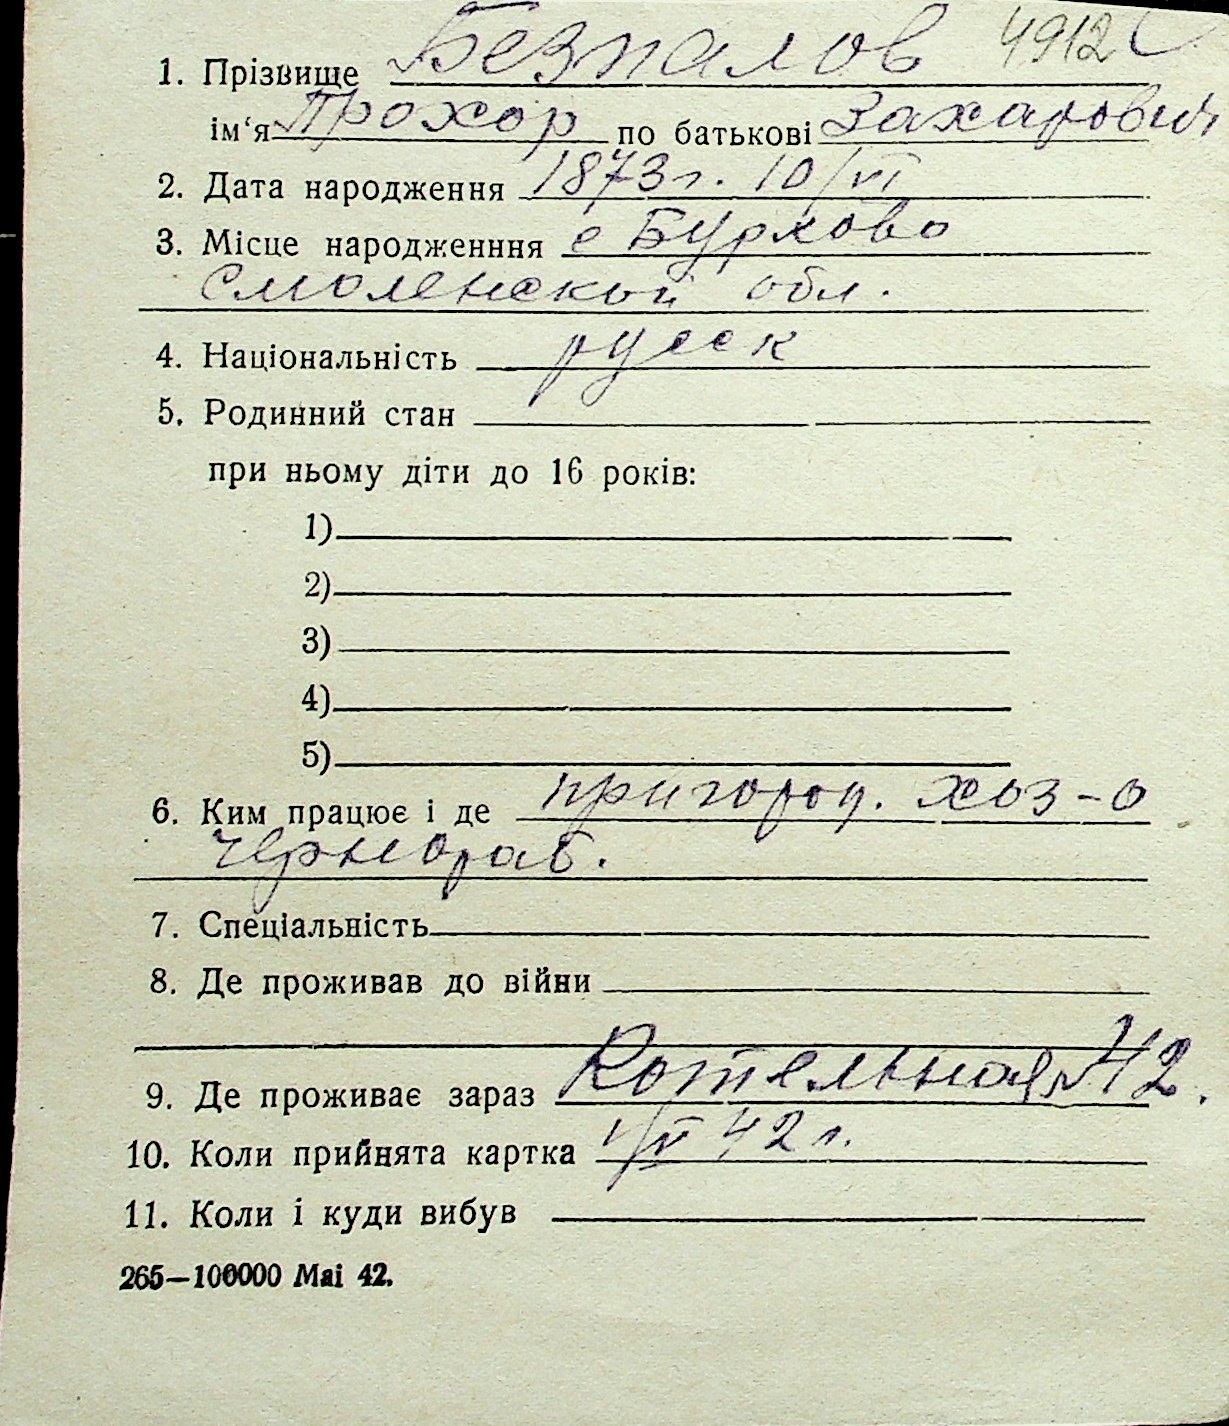 1. Прізвище Безпалов 4912
ім‘я Прохор по батькові Захарович
2. Дата народження 1873 г. 10/VI
3. Місце народженння с Бурково
Смоленской обл.
4. Національність русск
5. Родинний стан
при ньому діти до 16 років:
1)
2)
3)
4)
5)
6. Ким працює і де пригород. хоз-о
чернораб.
7. Спеціальність
8. Де проживав до війни
9. Де проживає зараз Котельная 42.
10. Коли прийнята картка 42 г.
11. Коли і куди вибув
265—100000 Mai 42.